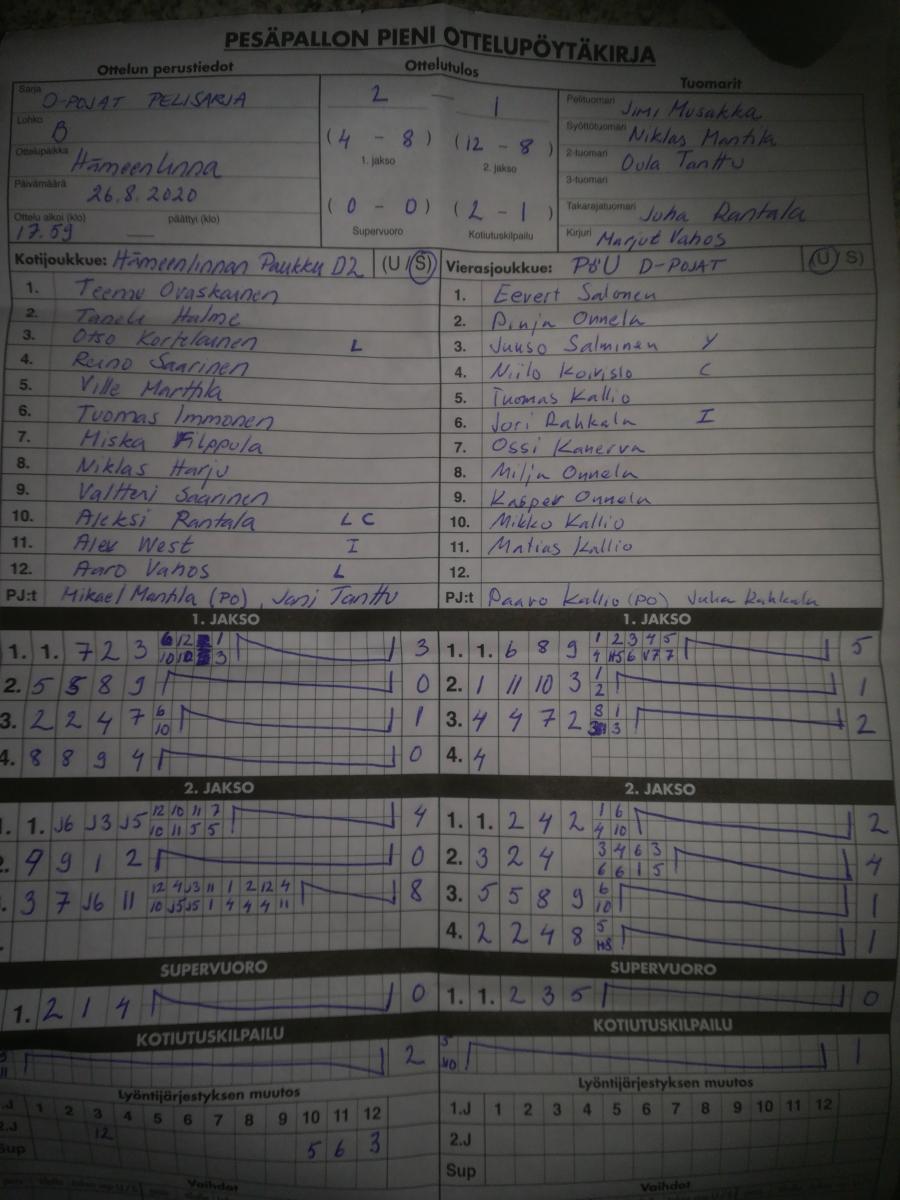 PESÄPALLON PIENI OTTELUPÖYTÄKIRJA
Ottelun perustiedot
Ottelutulos
Tuomarit
Sarja D-POJAT PELISARJA
Lohko B
Ottelupaikka Hämeenlinna
Päivämäärä 26.8.2020
Ottelu alkoi (klo) 17.59 päättyi (klo)
2 - 1
(4 - 8) (12 - 8)
1. jakso 2. jakso
(0 - 0) (2 - 1)
Supervuoro Kotiutuskilpailu
Pelituomari Jimi Musakka
Syöttötuomari Niklas Mantila
2-tuomari Oula Tanttu
3-tuomari
Takarajatuomari Juha Rantala
Kirjuri Marjut Vahos
Kotijoukkue: Hämeenlinnan Paukku D2 (U/S)
1. Teemu Ovaskainen
2. Taneli Halme
3. Otso Kortelainen L
4. Reino Saarinen
5. Ville Marttila
6. Tuomas Immonen
7. Miska Filppula
8. Niklas Harju
9. Valtteri Saarinen
10. Aleksi Rantala L C
11. Alex West I
12. Aaro Vahos L
PJ:t Mikael Mantila (PO), Jani Tanttu
Vierasjoukkue: PöU D-POJAT (U/S)
1. Eevert Salonen
2. Pinja Onnela
3. Juuso Salminen Y
4. Niilo Koivisto C
5. Tuomas Kallio
6. Jori Rahkala I
7. Ossi Kanerva
8. Milja Onnela
9. Kasper Onnela
10. Mikko Kallio
11. Matias Kallio
12.
PJ:t Paavo Kallio (PO) Juha Rahkala
1. JAKSO
1. 1. 7 2 3 3
2. 5 5 8 9 0
3. 2 2 4 7 6 1
10
4. 8 8 9 4 0
1. JAKSO
1. 1. 6 8 9 1 2 3 4 5 5
2. 1 11 10 3 1 1
2
3. 4 4 7 2 2
4. 4
2. JAKSO
1. 1. J6 J3 J5 12 10 11 7 4
10 11 5 5
9 9 1 2 0
3 7 J6 11 12 4 J3 11 1 2 12 4 8
10 J5 J5 1 4 4 4 11
2. JAKSO
1. 1. 2 4 2 1 6 2
4 10
2. 3 2 4 3 4 6 3 4
6 6 1 5
3. 5 5 8 9 6 1
10
4. 2 2 4 8 5 1
H8
SUPERVUORO
1. 2 1 4 0
SUPERVUORO
1. 1. 2 3 5 0
KOTIUTUSKILPAILU
2
KOTIUTUSKILPAILU
1
Lyöntijärjestyksen muutos
1.J 1 2 3 4 5 6 7 8 9 10 11 12
2.J 12
Sup 5 6 3
Vaihdot
Lyöntijärjestyksen muutos
1.J 1 2 3 4 5 6 7 8 9 10 11 12
2.J
Sup
Vaihdot